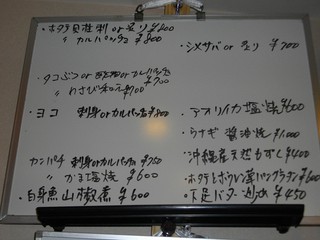 ・ホタテ貝柱 刺 or 炙り ¥800
〃 カルパッチョ ¥800
・シメサバ or 炙り ¥700
・タコぶつ or カルパッチョ
¥700
〃 わさび和え ¥700
・ヨコ 刺身 or カルパッチョ ¥800
・アオリイカ 塩焼 ¥600
・ウナギ 醤油焼 ¥1,000
カンパチ 刺身 or カルパッチョ ¥750
〃 かま塩焼 ¥600
・沖縄産 天然もずく ¥400
・ホタテとほうれん草パングラタン ¥600
・白身魚 山椒煮 ¥600
・下足バター ¥450